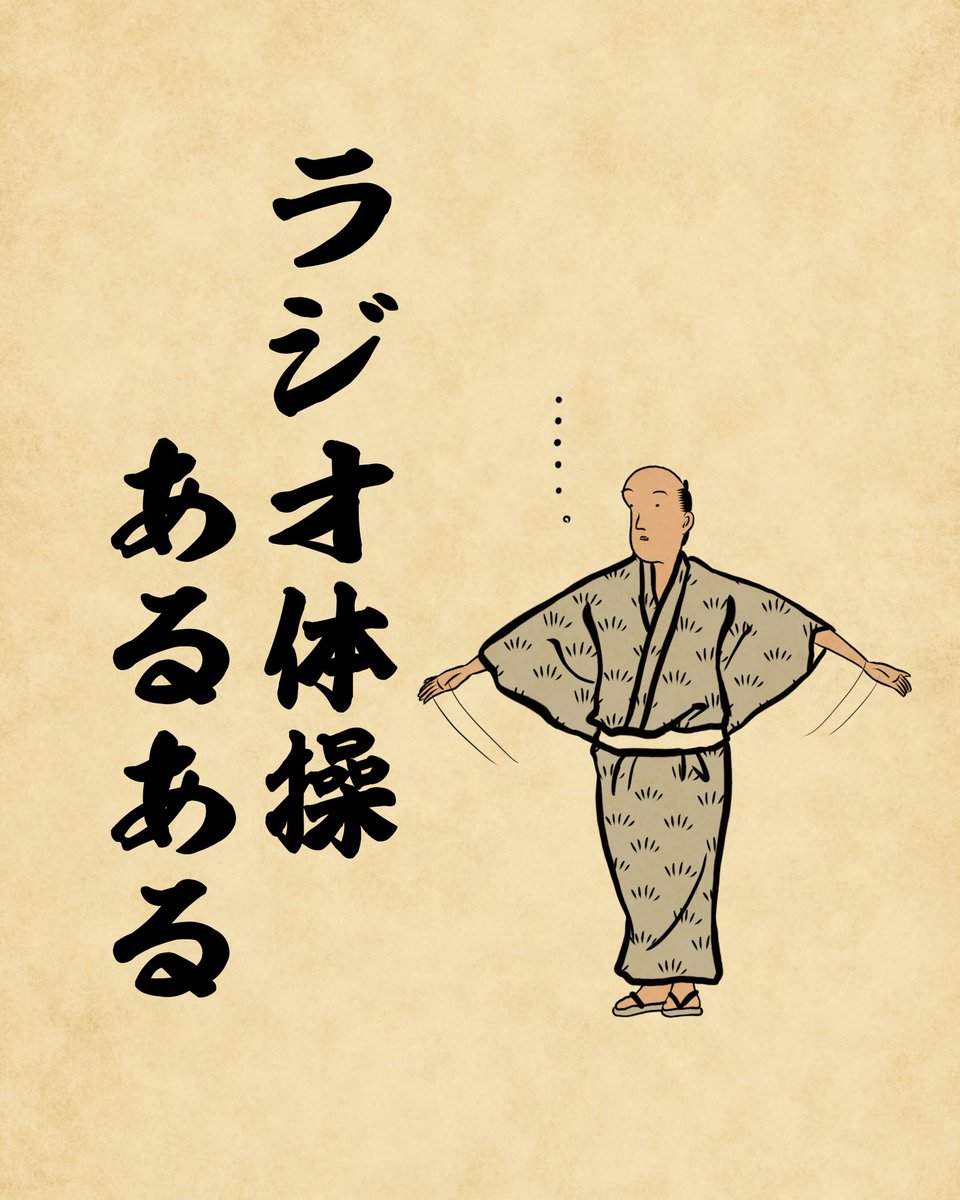 ラジオ体操
あるある
……。